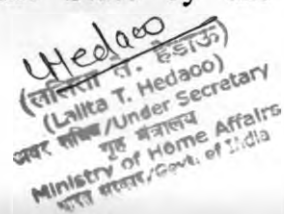 Hedaoo
(ललिता ते. हेडाऊ)
(Lalita T. Hedaoo)
अवर सचिव/Under Secretary
गृह मंत्रालय
Ministry of Home Affairs
भारत सरकार/Govt. of India